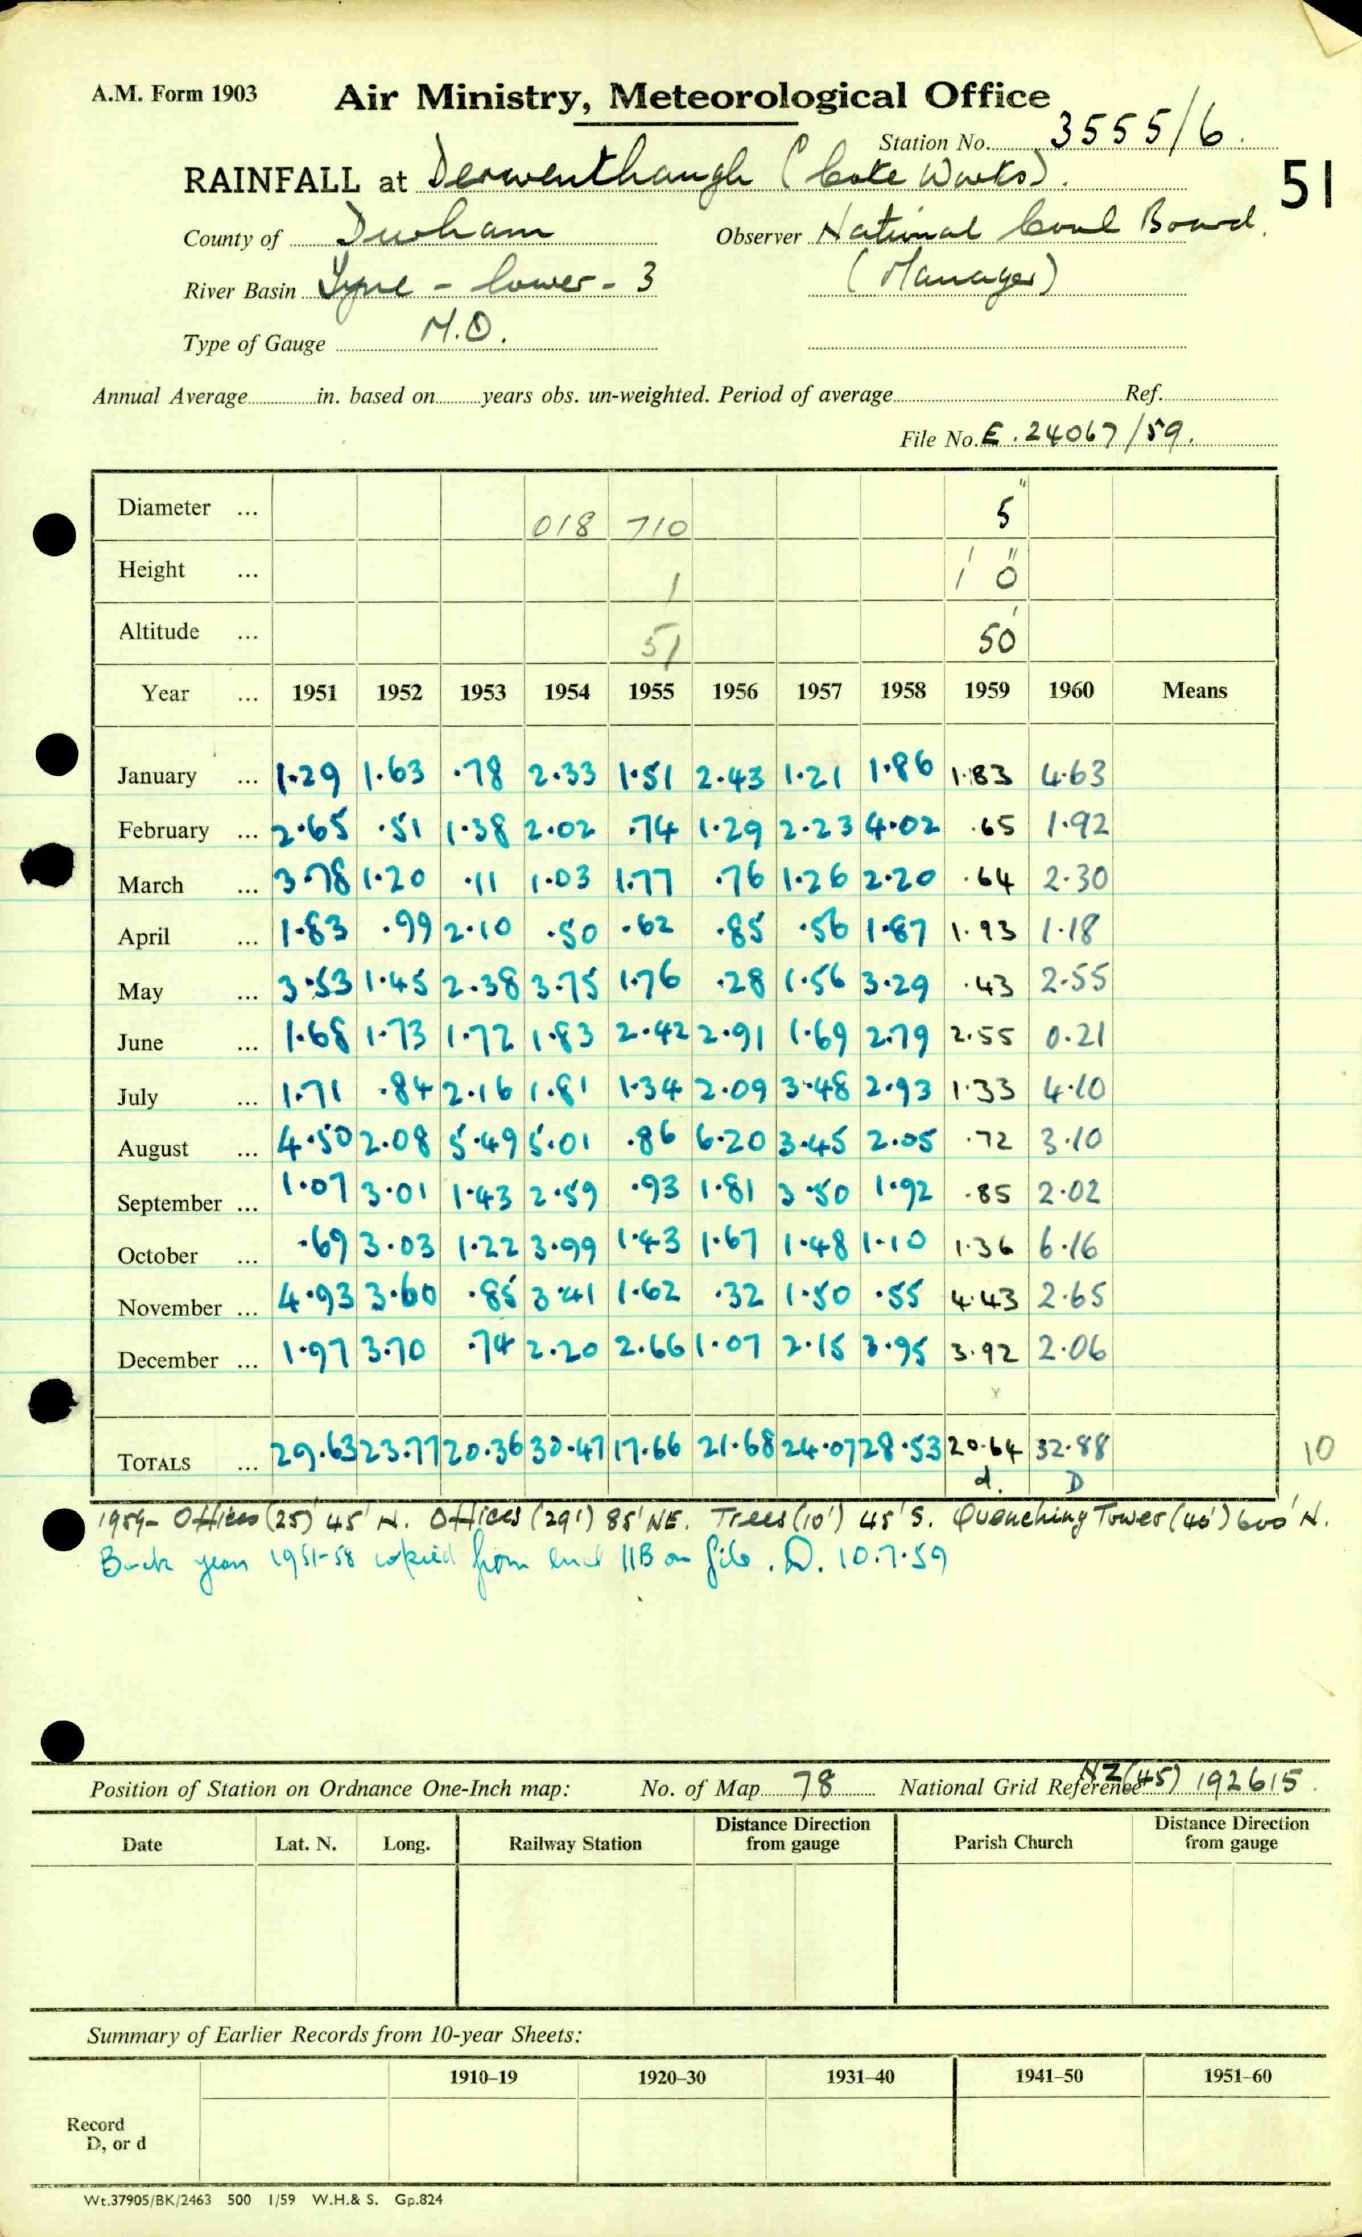 A.M. Form 1903 Air Ministry, Meteorological Office
Station No. 3555/6.
RAINFALL at Derwenthaugh (Coke Works). 51
County of Durham Observer National Coal Board.
River Basin Tyne - lower - 3 (Manager)
Type of Gauge M.O.
Annual Average in. based on years obs. un-weighted. Period of average Ref.
File No. E. 24067/59.
Diameter ... 018 710 5"
Height ... 1 1' 0"
Altitude ... 51 50'
Year ... 1951 1952 1953 1954 1955 1956 1957 1958 1959 1960 Means
January ... 1.29 1.63 .78 2.33 1.51 2.43 1.21 1.86 1.83 4.63
February ... 2.65 .51 1.38 2.02 .74 1.29 2.23 4.02 .65 1.92
March ... 3.78 1.20 .11 1.03 1.77 .76 1.26 2.20 .64 2.30
April ... 1.83 .99 2.10 .50 .62 .85 .56 1.87 1.93 1.18
May ... 3.53 1.45 2.38 3.75 1.76 .28 1.56 3.29 .43 2.55
June ... 1.68 1.73 1.72 1.83 2.42 2.91 1.69 2.79 2.55 0.21
July ... 1.71 .84 2.16 1.81 1.34 2.09 3.48 2.93 1.33 4.10
August ... 4.50 2.08 5.49 5.01 .86 6.20 3.45 2.05 .72 3.10
September ... 1.07 3.01 1.43 2.59 .93 1.81 3.50 1.92 .85 2.02
October ... .69 3.03 1.22 3.99 1.43 1.67 1.48 1.10 1.36 6.16
November ... 4.93 3.60 .85 3.41 1.62 .32 1.50 .55 4.43 2.65
December ... 1.97 3.70 .74 2.20 2.66 1.07 2.15 3.95 3.92 2.06
TOTALS ... 29.63 23.77 20.36 30.47 17.66 21.68 24.07 28.53 20.64 32.88 10
d. D
1959- Offices (25') 45' N. Offices (29') 85' NE. Trees (10') 45' S. Quenching Tower (40') 600' N.
Back years 1951-58 copied from encl 11B on file. D. 10.7.59
Position of Station on Ordnance One-Inch map: No. of Map 78 National Grid Reference NZ (45) 192615.
Date Lat. N. Long. Railway Station Distance Direction from gauge Parish Church Distance Direction from gauge
Summary of Earlier Records from 10-year Sheets:
1910–19 1920–30 1931–40 1941–50 1951–60
Record
D, or d
Wt.37905/BK/2463 500 1/59 W.H.& S. Gp.824